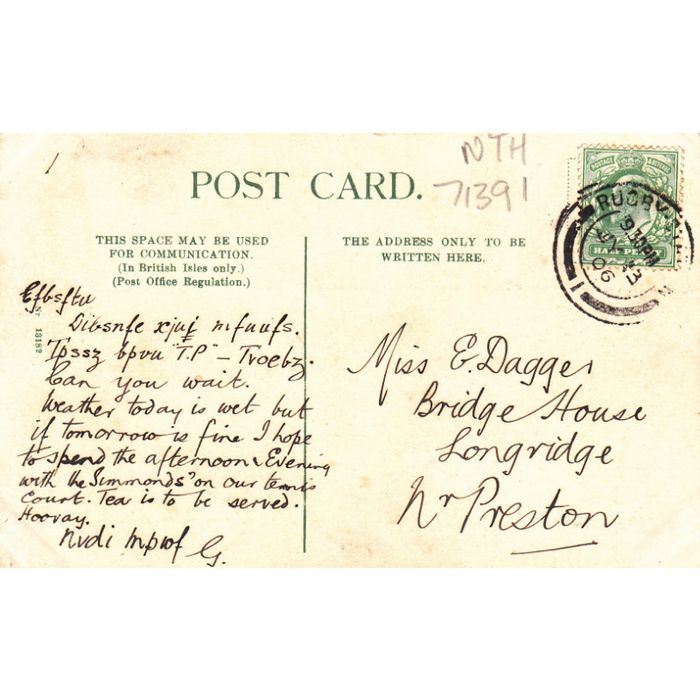 1
NTH
71391
POST CARD.
THIS SPACE MAY BE USED
FOR COMMUNICATION.
(In British Isles only.)
(Post Office Regulation.)
THE ADDRESS ONLY TO BE
WRITTEN HERE.
POSTAGE & REVENUE
HALFPENNY
RUGBY
13
06
1
13182
Efbsftu
Dibsnfe xjui mfuufs.
Tpssz bpvu "T.P" – Tvoebz.
Can you wait.
Weather today is wet but
if tomorrow is fine I hope
to spend the afternoon & Evening
with the Simmonds' on our tennis
Court. Tea is to be served.
Hooray.
nvdi mpwf G.
Miss E. Dagger
Bridge House
Longridge
Nr Preston